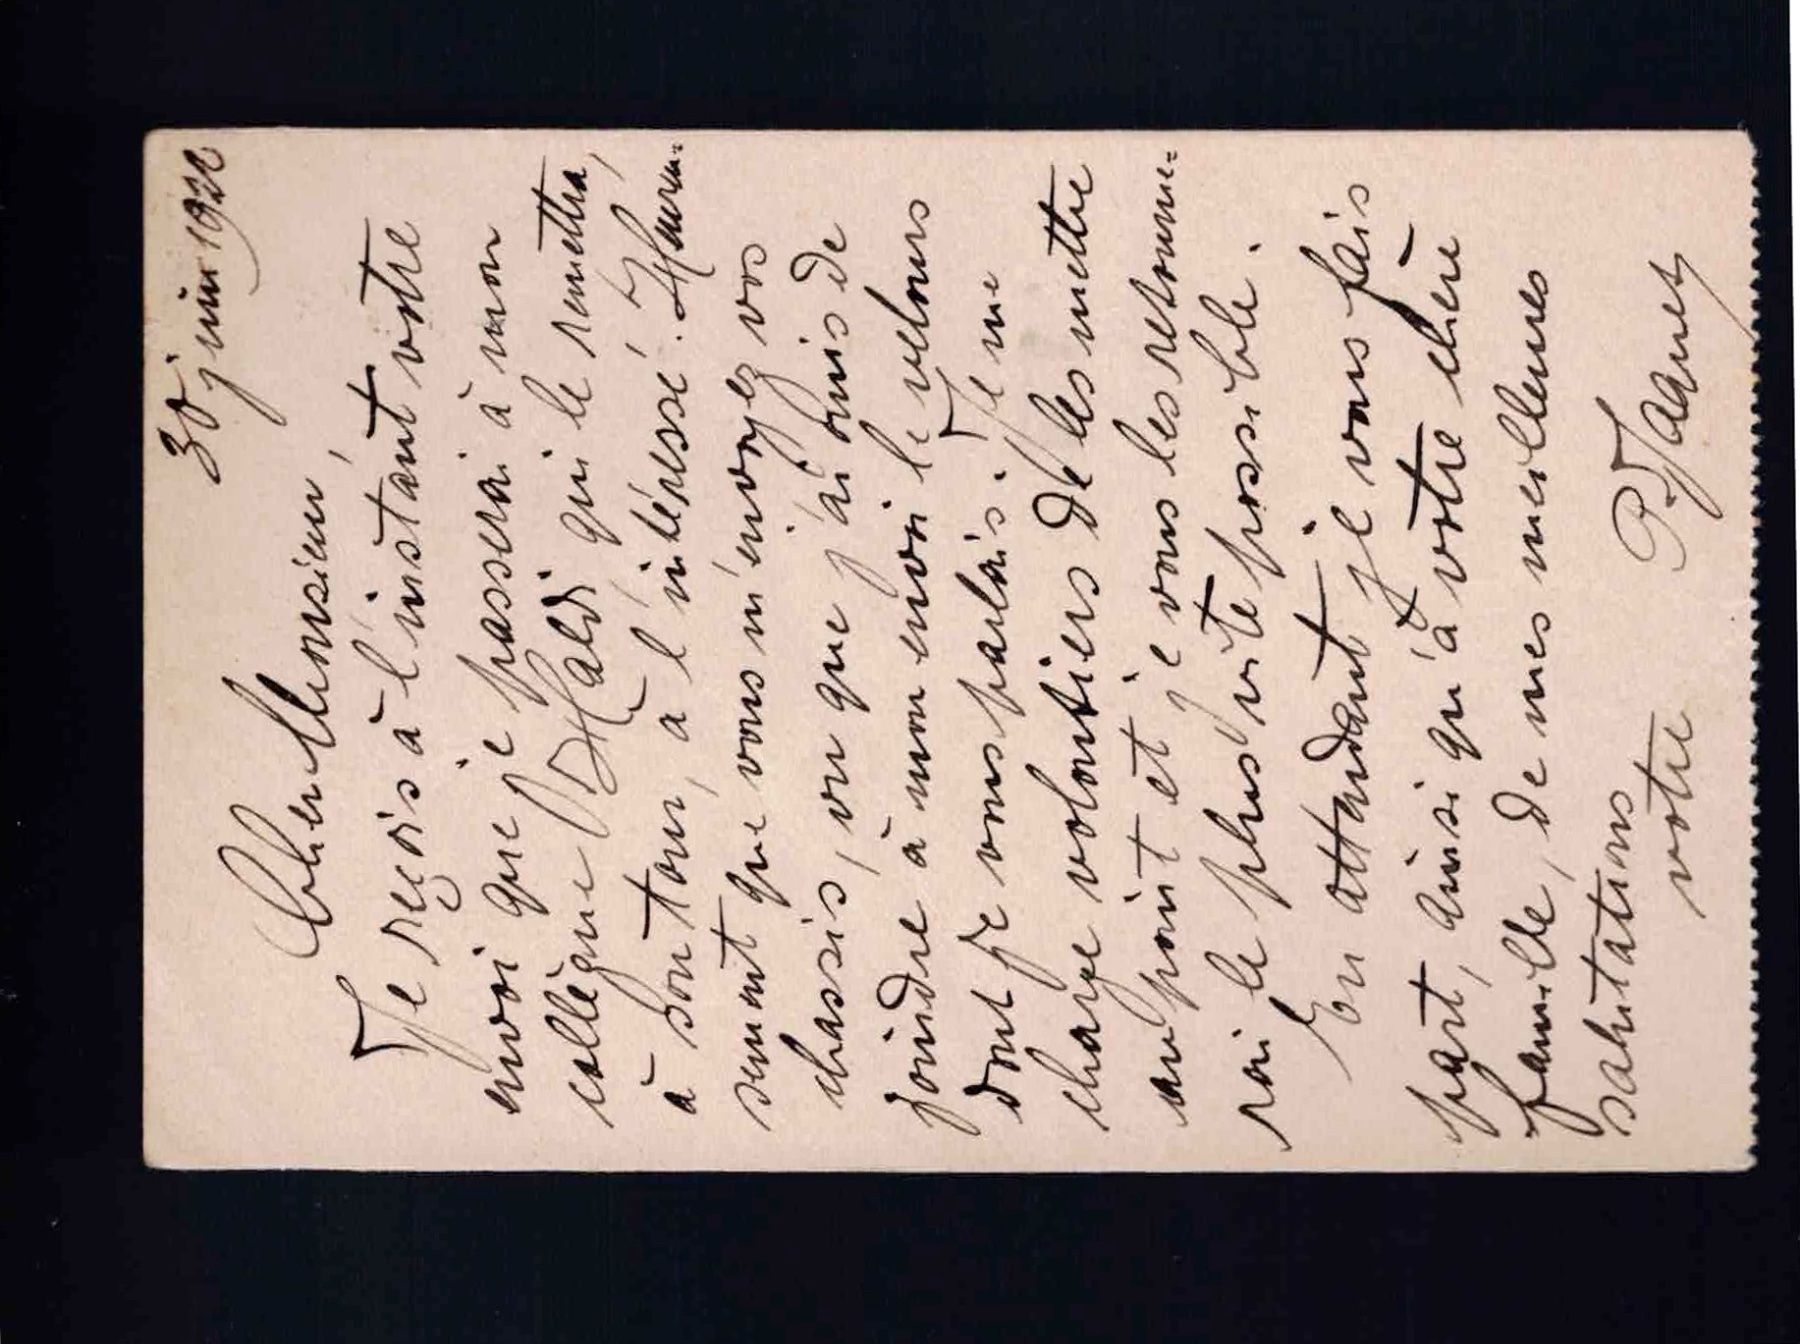 30 juin 1922
Cher Monsieur,
Je reçois à l'instant votre
envoi que je passerai à mon
collègue Haldi qui le remettra,
à son tour, à l'intéressé. Heureu=
sement que vous m'envoyez vos
chassis, vu que j'ai omis de
joindre à mon envoi le velours
dont je vous parlais. Je me
charge volontiers de les mettre
au point et je vous les retourne=
rai le plus vite possible.
En attendant je vous fais
part, ainsi qu'à votre chère
famille, de mes meilleures
salutations
votre P. Jaques